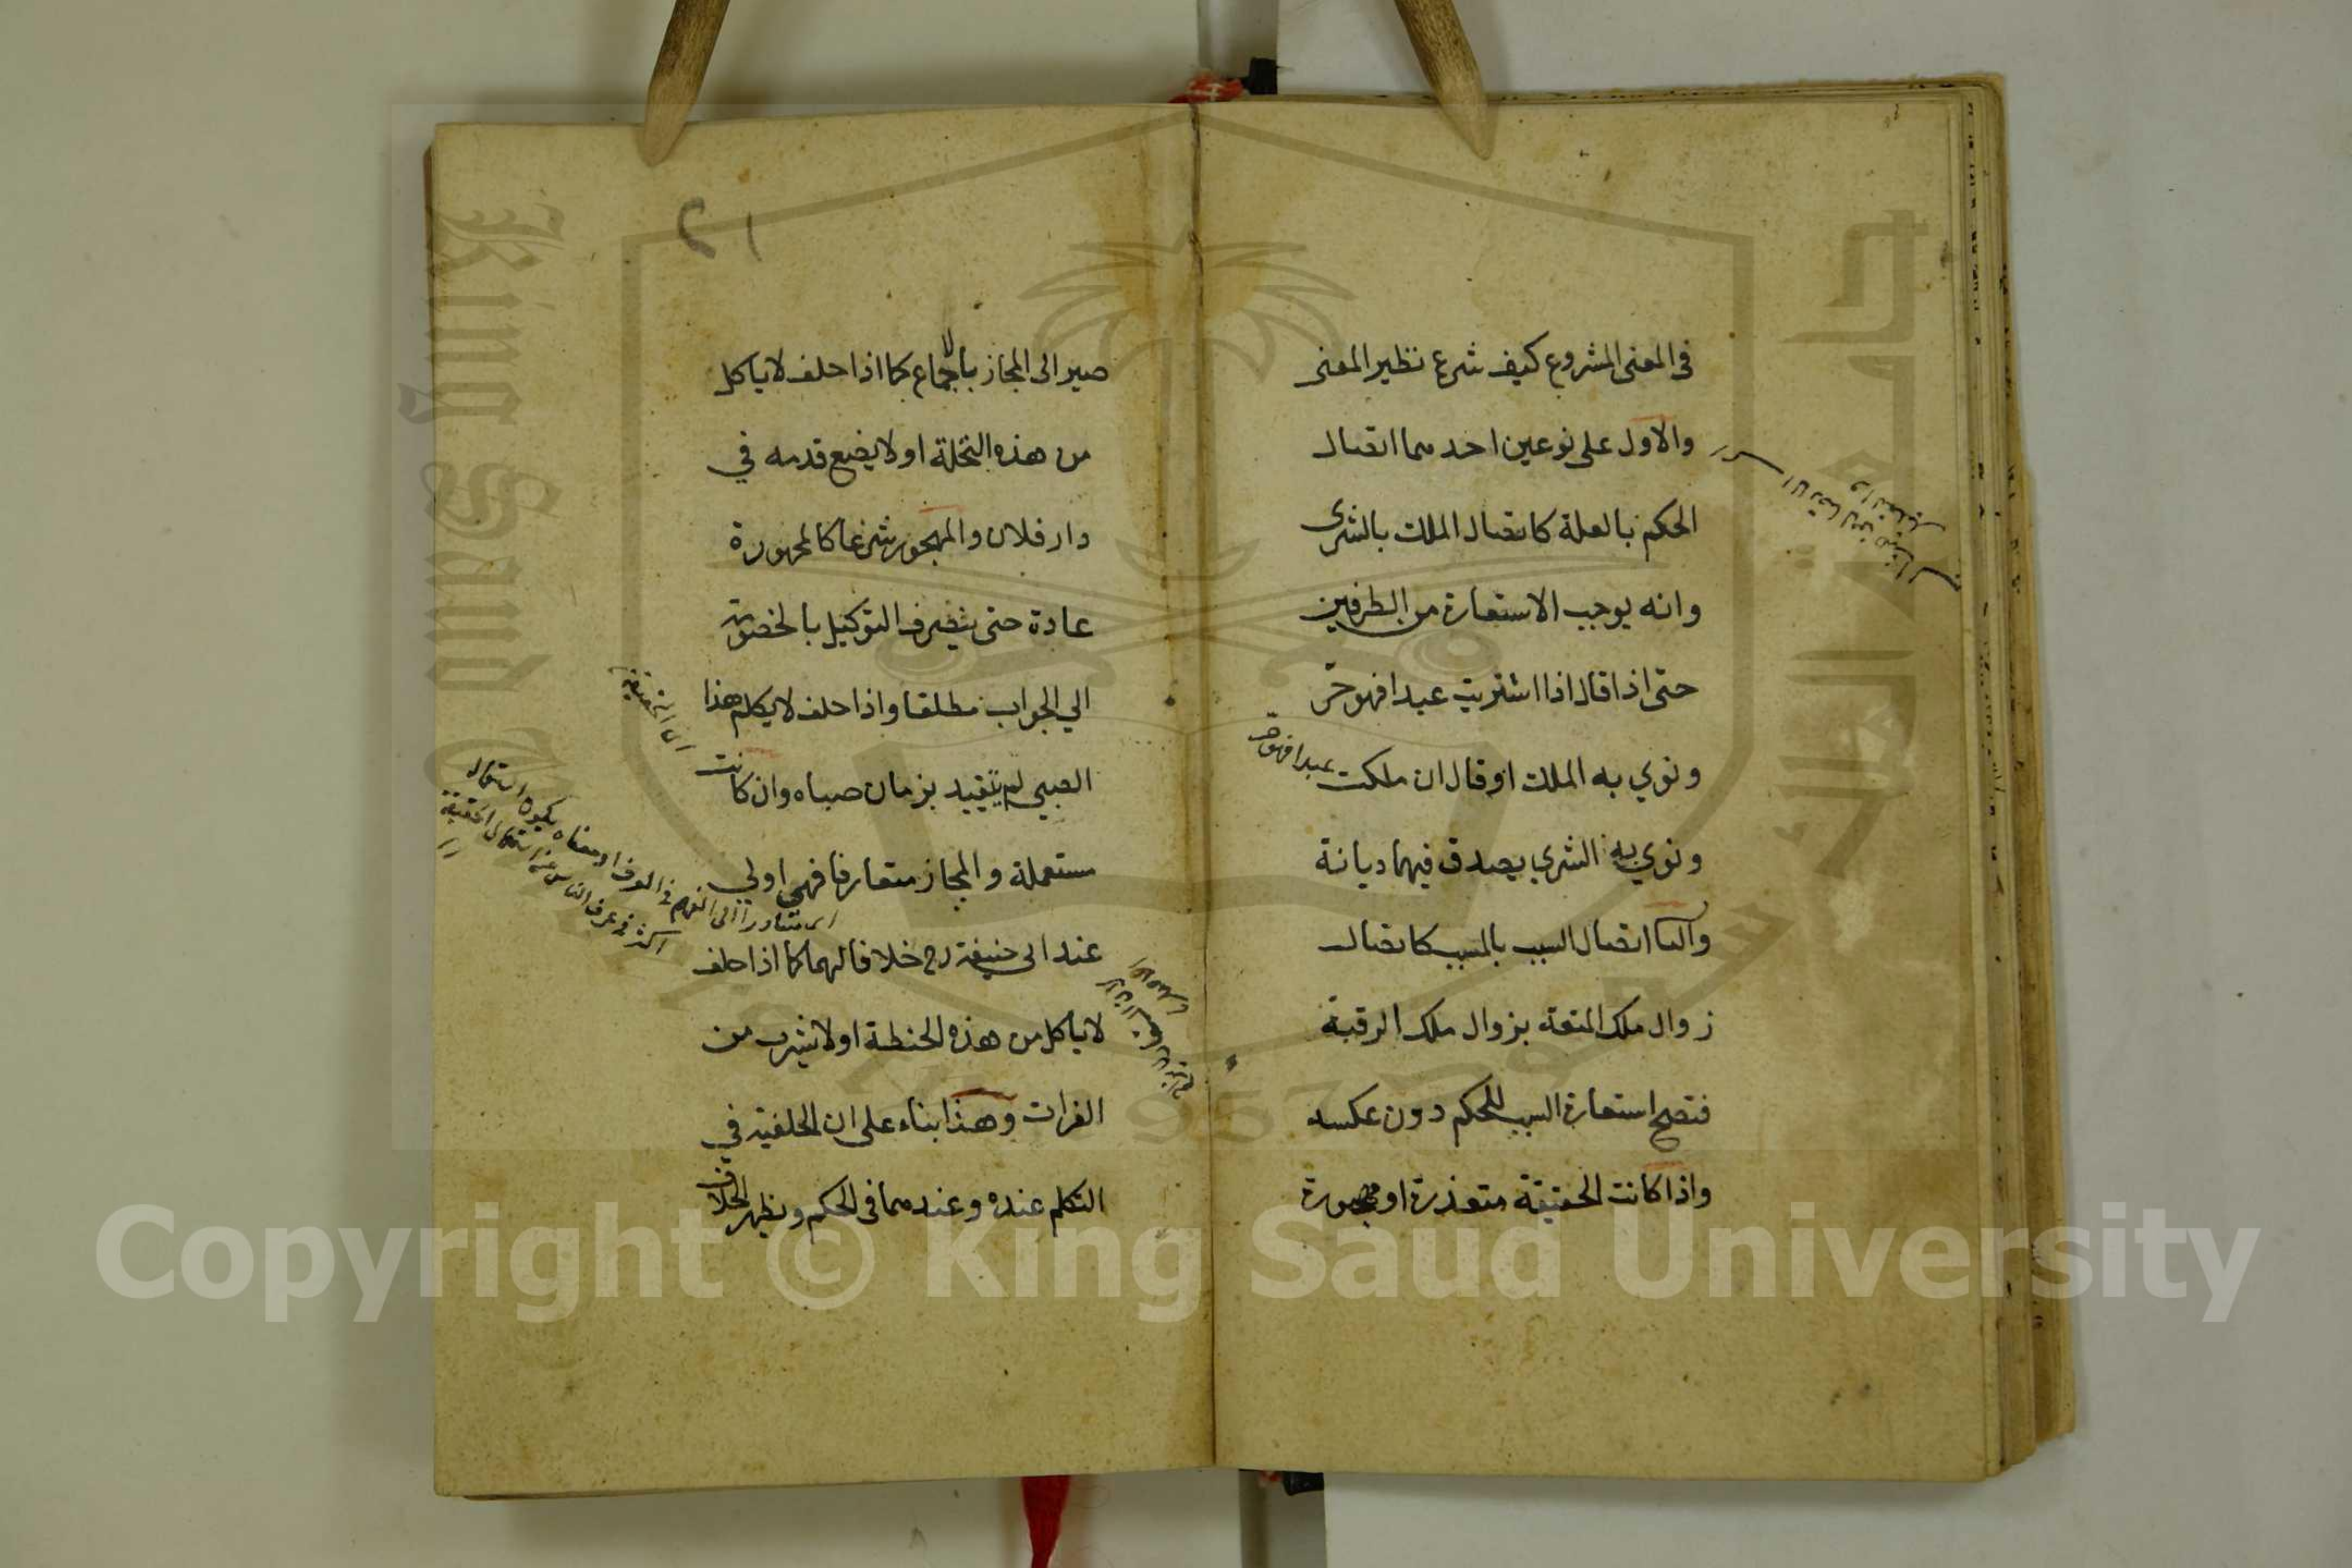 في المعنى المشروع كيف شرع نظير المعنى
والاول على نوعين احدهما اتصال
الحكم بالعلة كاتصال الملك بالشرى
وانه يوجب الاستعارة من الطرفين
حتى اذا قال اذا اشتريت عبدا فهو حر
ونوي به الملك او قال ان ملكت عبدا فهو حر
ونوي به الشري يصدق فيهما ديانة
والثا اتصال السبب بالمسبب كاتصال
زوال ملك المتعة بزوال ملك الرقبة
فتصح استعارة السبب للحكم دون عكسه
واذا كانت الحقيقة متعذرة او مهجورة
١٢
صير الى المجاز بالاجماع كما اذا حلف لا ياكل
من هذه النخلة او لا يضع قدمه في
دار فلان والمهجور شرعا كالمهجورة
عادة حتى ينصرف التوكيل بالخصومة
الي الجواب مطلقا واذا حلف لا يكلم هذا
الصبي لم يتقيد بزمان صباه وان كانت
مستعملة والمجاز متعارفا فهي اولي
عند ابي حنيفة رح خلافا لهما كما اذا حلف
لا ياكل من هذه الحنطة او لا يشرب من
الفرات وهذا بناء على ان الخلفية في
التكلم عنده وعندهما في الحكم ويظهر الخلاف
اي الحقيقة
اي متبادرا الى الفهم في العرف او معناه يكون استعماله
اكثر في عرف الناس من استعمال الحقيقة
Copyright © King Saud University
King Saud University
1957